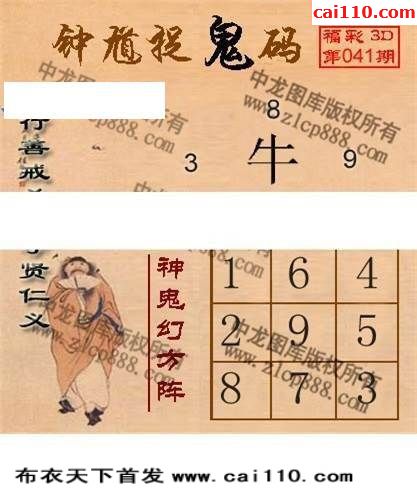 cai110.com
钟馗捉鬼码
福彩3D
第041期
中龙图库版权所有
www.zlcp888.com
8
3 牛 9
行善戒
贤仁义
神鬼幻方阵
1 6 4
2 9 5
8 7 3
中龙图库版权所有
www.zlcp888.com
布衣天下首发 www.cai110.com